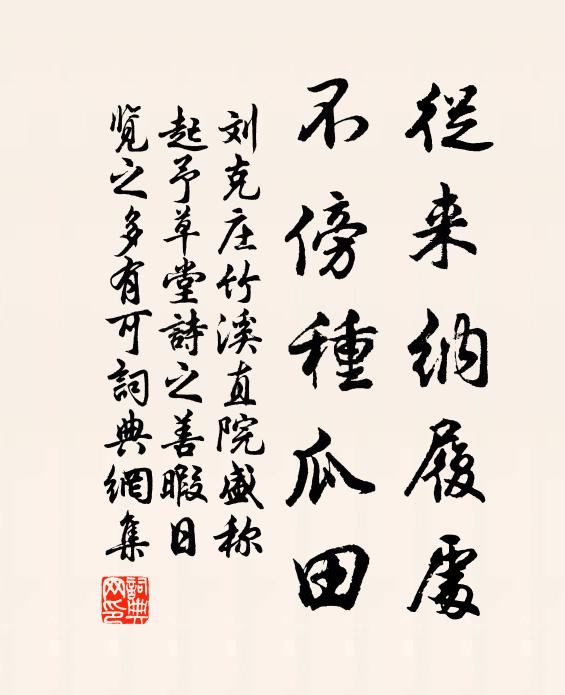 從来納履處
不傍種瓜田
刘克庄竹溪直院盛称
起予草堂詩之善暇日
覽之多有可詞典網集
詞典網印